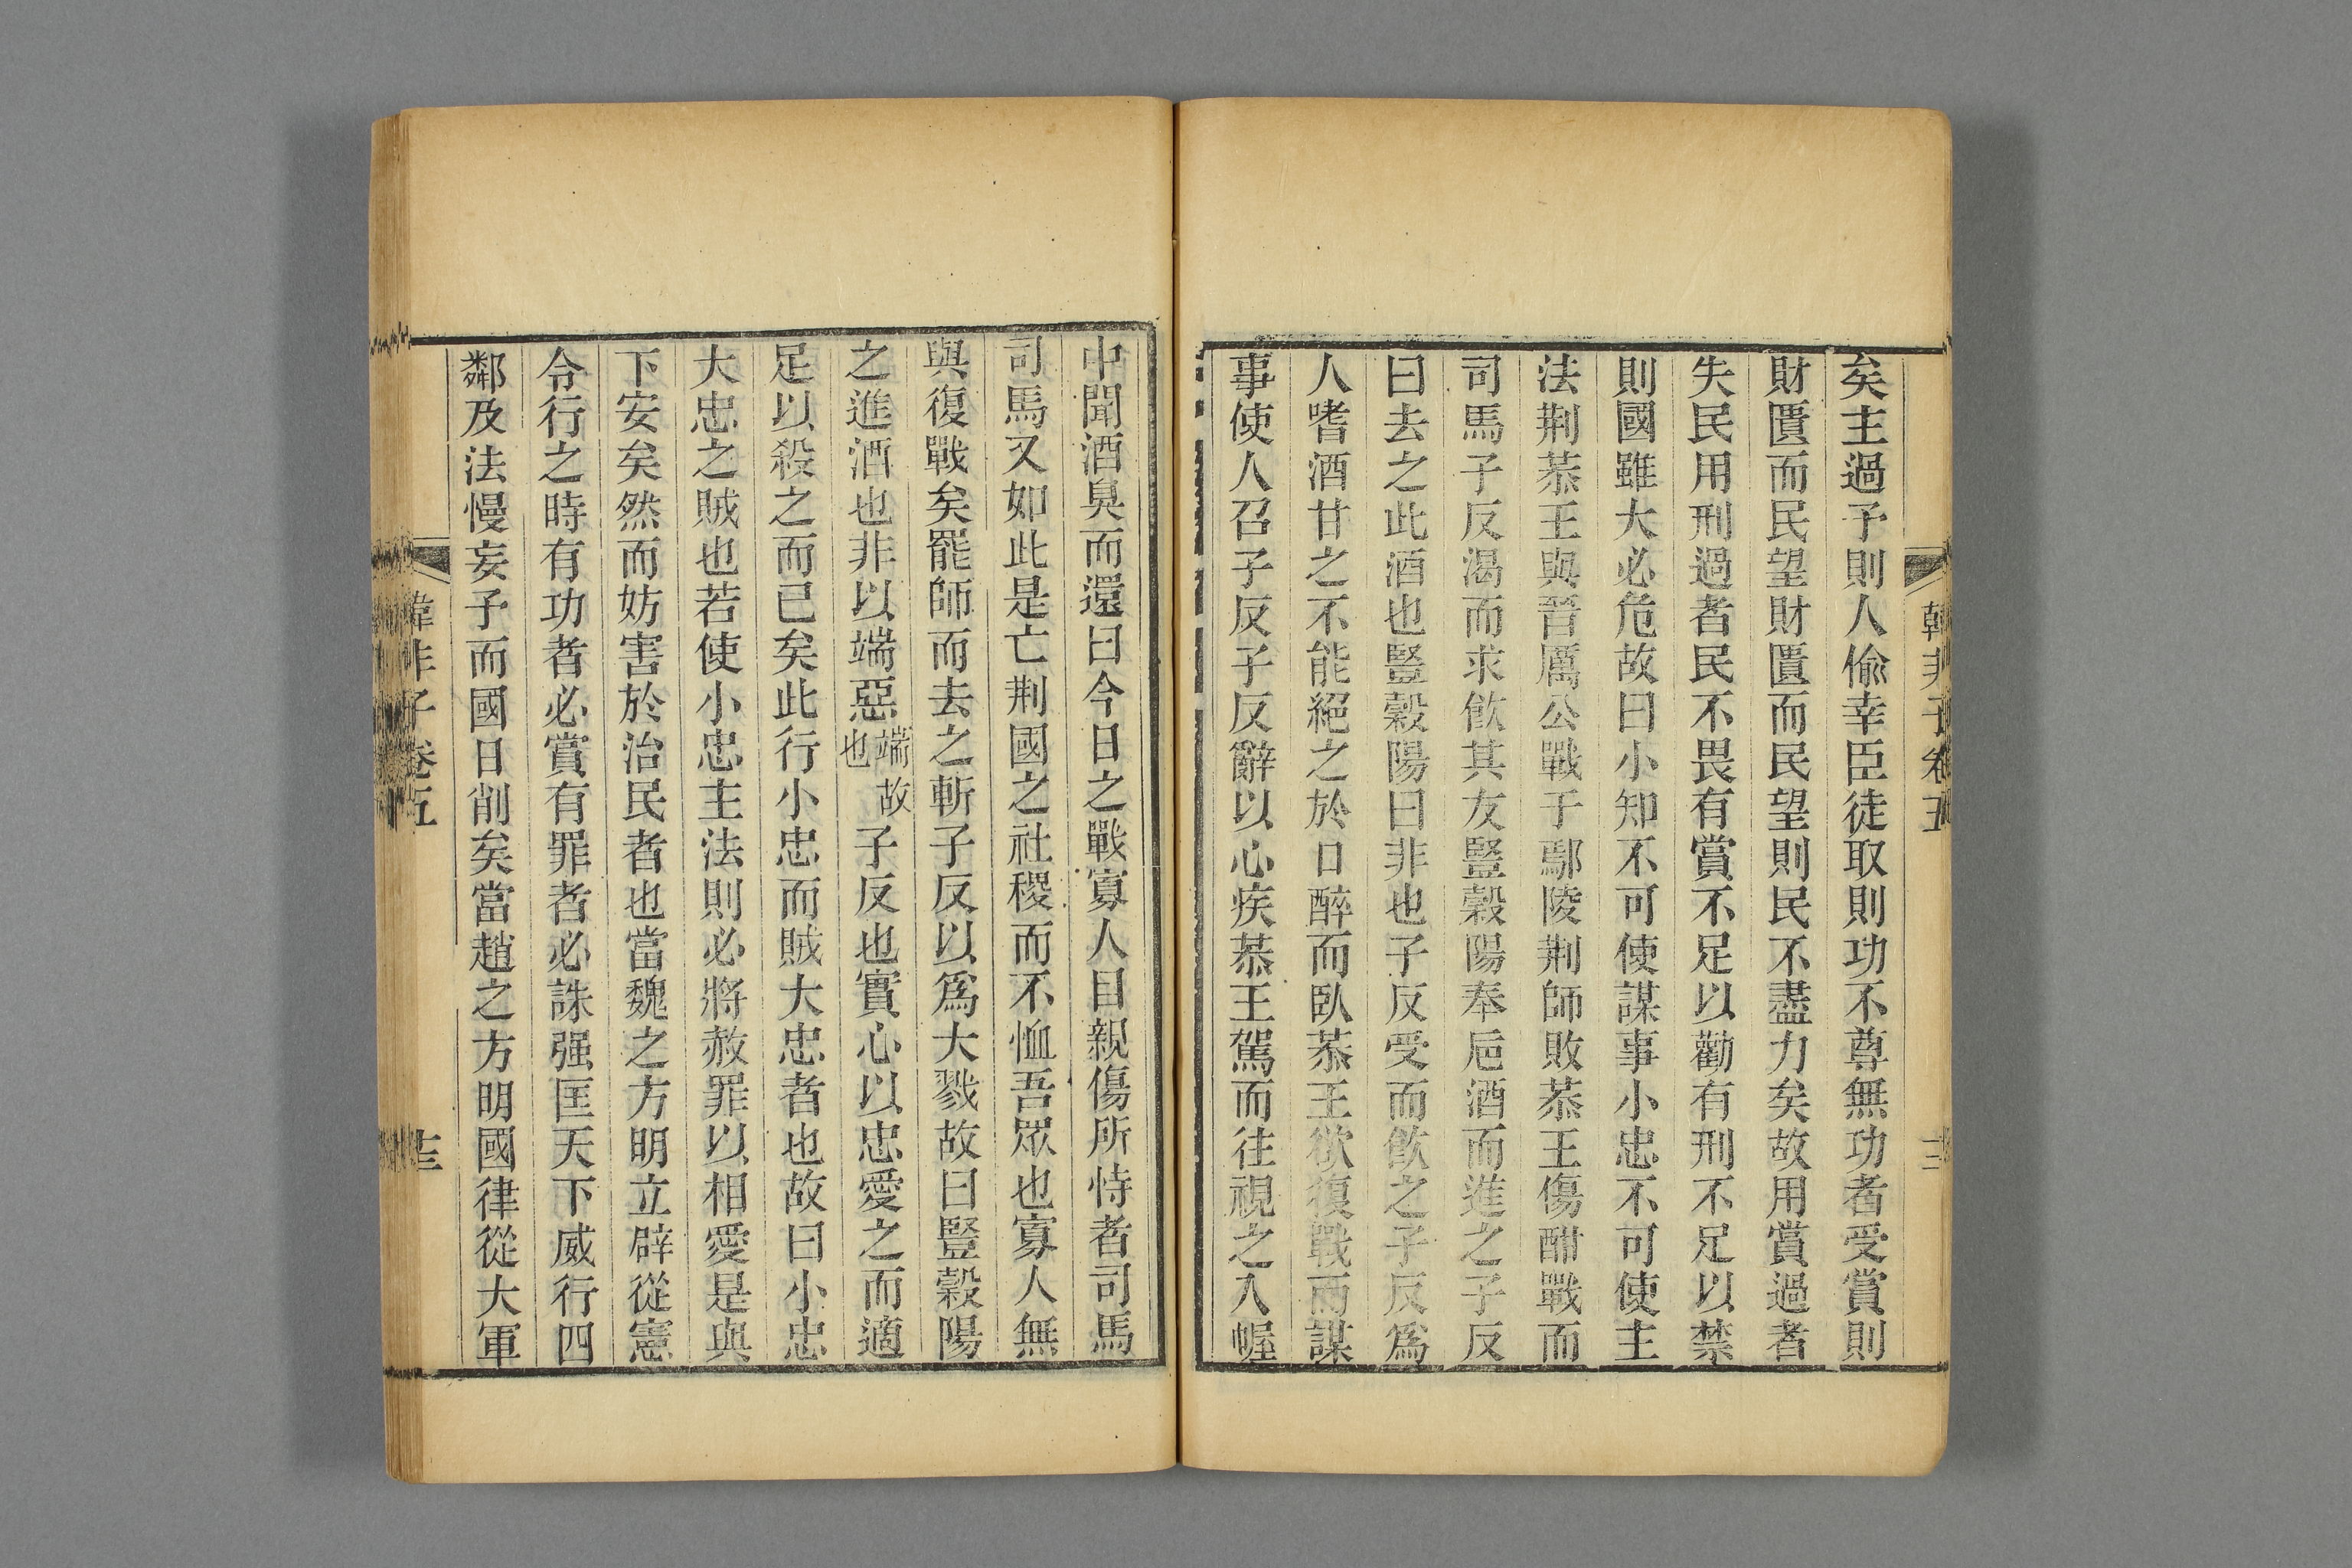 矣主過予則人偷幸臣徒取則功不尊無功者受賞則
財匱而民望財匱而民望則民不盡力矣故用賞過者
失民用刑過者民不畏有賞不足以勸有刑不足以禁
則國雖大必危故曰小知不可使謀事小忠不可使主
法荆恭王與晉厲公戰于鄢陵荆師敗恭王傷酣戰而
司馬子反渴而求飲其友豎穀陽奉巵酒而進之子反
曰去之此酒也豎穀陽曰非也子反受而飲之子反爲
人嗜酒甘之不能絕之於口醉而臥恭王欲復戰而謀
事使人召子反子反辭以心疾恭王駕而往視之入幄
韓非子卷五
中聞酒臭而還曰今日之戰寡人目親傷所恃者司馬
司馬又如此是亡荆國之社稷而不恤吾眾也寡人無
與復戰矣罷師而去之斬子反以爲大戮故曰豎穀陽
之進酒也非以端惡端故也子反也實心以忠愛之而適
足以殺之而已矣此行小忠而賊大忠者也故曰小忠
大忠之賊也若使小忠主法則必將赦罪以相愛是與
下安矣然而妨害於治民者也當魏之方明立辟從憲
令行之時有功者必賞有罪者必誅强匡天下威行四
鄰及法慢妄予而國日削矣當趙之方明國律從大軍
韓非子卷五